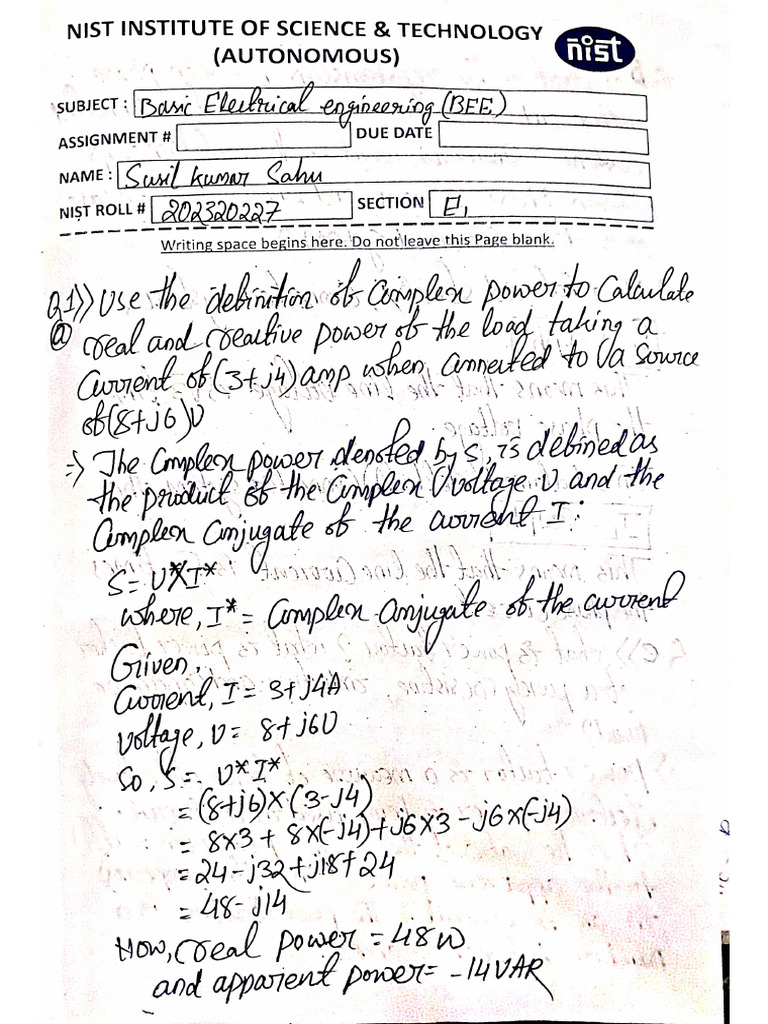 NIST INSTITUTE OF SCIENCE & TECHNOLOGY
(AUTONOMOUS)
nist
SUBJECT : Basic Electrical engineering (BEE)
ASSIGNMENT # DUE DATE
NAME : Susil Kumar Sahu
NIST ROLL # 202320227 SECTION E1
Writing space begins here. Do not leave this Page blank.
Q1)) Use the definition of Complex power to Calculate
(a) real and reactive power of the load taking a
Current of (3+j4) amp when connected to a source
of (8+j6)V
=> The Complex power denoted by S, is defined as
the product of the Complex voltage V and the
Complex Conjugate of the current I:
S = V*I*
where, I* = Complex Conjugate of the current
Given,
Current, I = 3+j4A
Voltage, V = 8+j6V
So, S = V*I*
= (8+j6)×(3-j4)
= 8×3 + 8×(-j4)+j6×3 - j6×(-j4)
= 24-j32+j18+24
= 48-j14
Now, real power = 48W
and apparent power= -14VAR